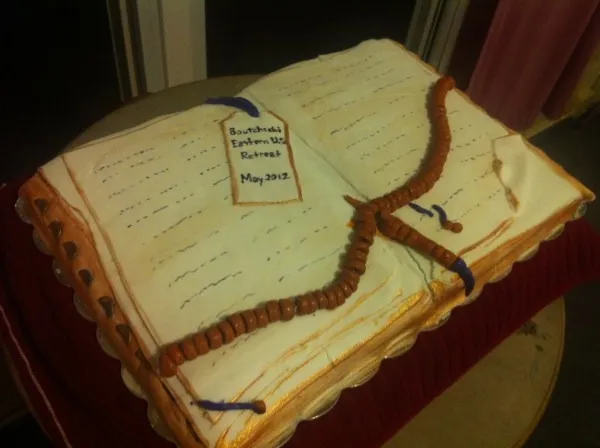 Boutchichi
Eastern US
Retreat
May 2012